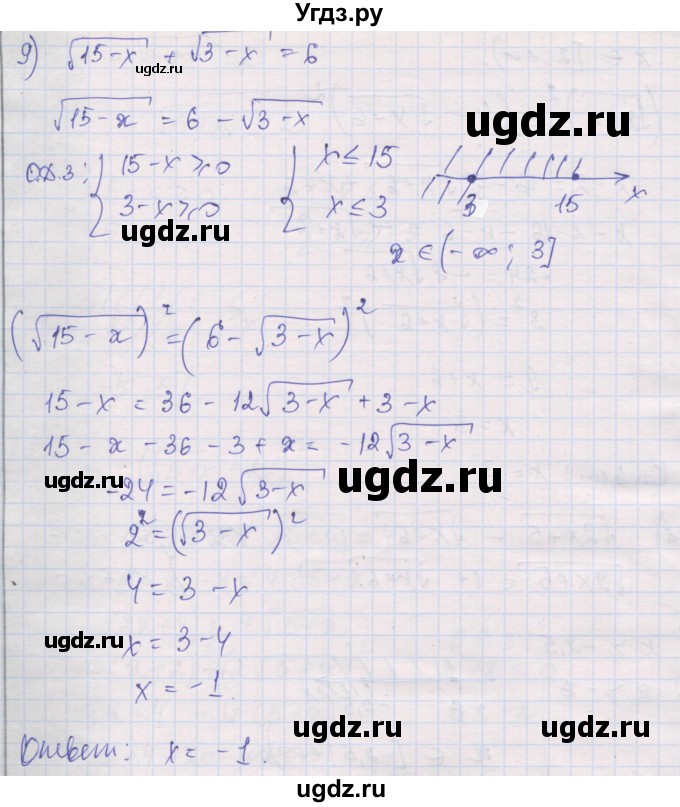 Угдз.ру
9) √(15-x) + √(3-x) = 6
ugdz.ru
√(15-x) = 6 - √(3-x)
О.Д.З: { 15-x ≥ 0 { x ≤ 15
3-x ≥ 0 x ≤ 3
3 15 x
ugdz.ru
x ∈ (-∞; 3]
(√(15-x))² = (6 - √(3-x))²
15-x = 36 - 12√(3-x) + 3-x
15-x-36-3+x = -12√(3-x)
ugdz.ru
-24 = -12√(3-x)
ugdz.ru
2² = (√(3-x))²
4 = 3-x
ugdz.ru
x = 3-4
x = -1.
ugdz.ru
Ответ: x = -1.
ugdz.ru